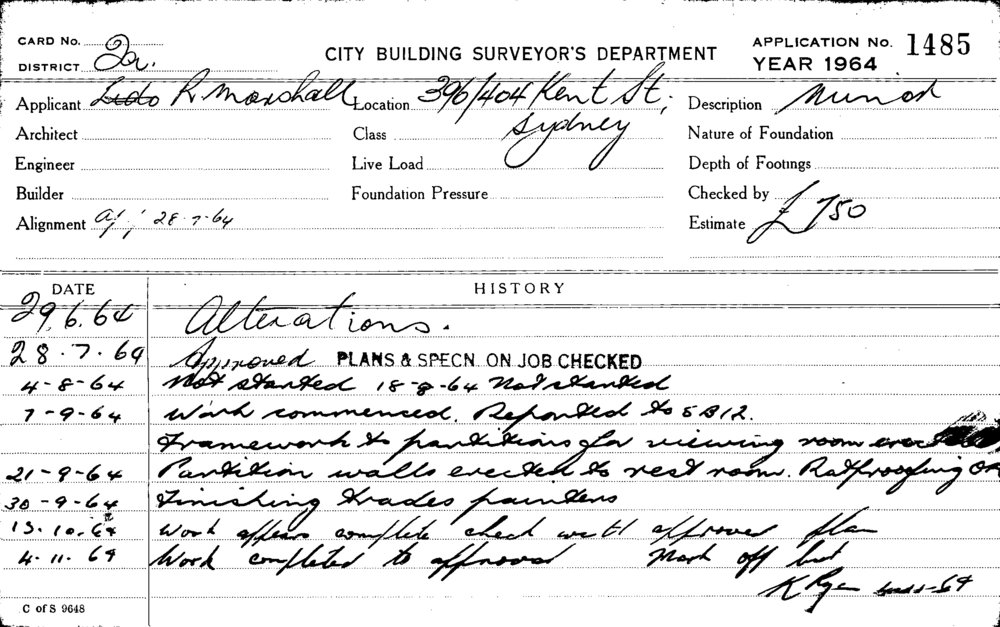 CARD No. 2a. CITY BUILDING SURVEYOR'S DEPARTMENT APPLICATION No. 1485
DISTRICT YEAR 1964
Applicant Lido R. Marshall Location 396/404 Kent St; Description Minor
Architect Class Sydney Nature of Foundation
Engineer Live Load Depth of Footings
Builder Foundation Pressure Checked by
Alignment 28-7-64 Estimate £750
DATE HISTORY
29.6.64 Alterations.
28.7.64 Approved PLANS & SPECN. ON JOB CHECKED
4-8-64 Not started 18-8-64 Not started
7-9-64 Work commenced. Reported to E.B.12.
Framework to partitions for viewing room erected
21-9-64 Partition walls erected to rest room. Ratproofing OK
30-9-64 Finishing trades painters
13.10.64 Work appears complete check with approved plan
4.11.64 Work completed to approval Mark off list
K Ryan
C of S 9648